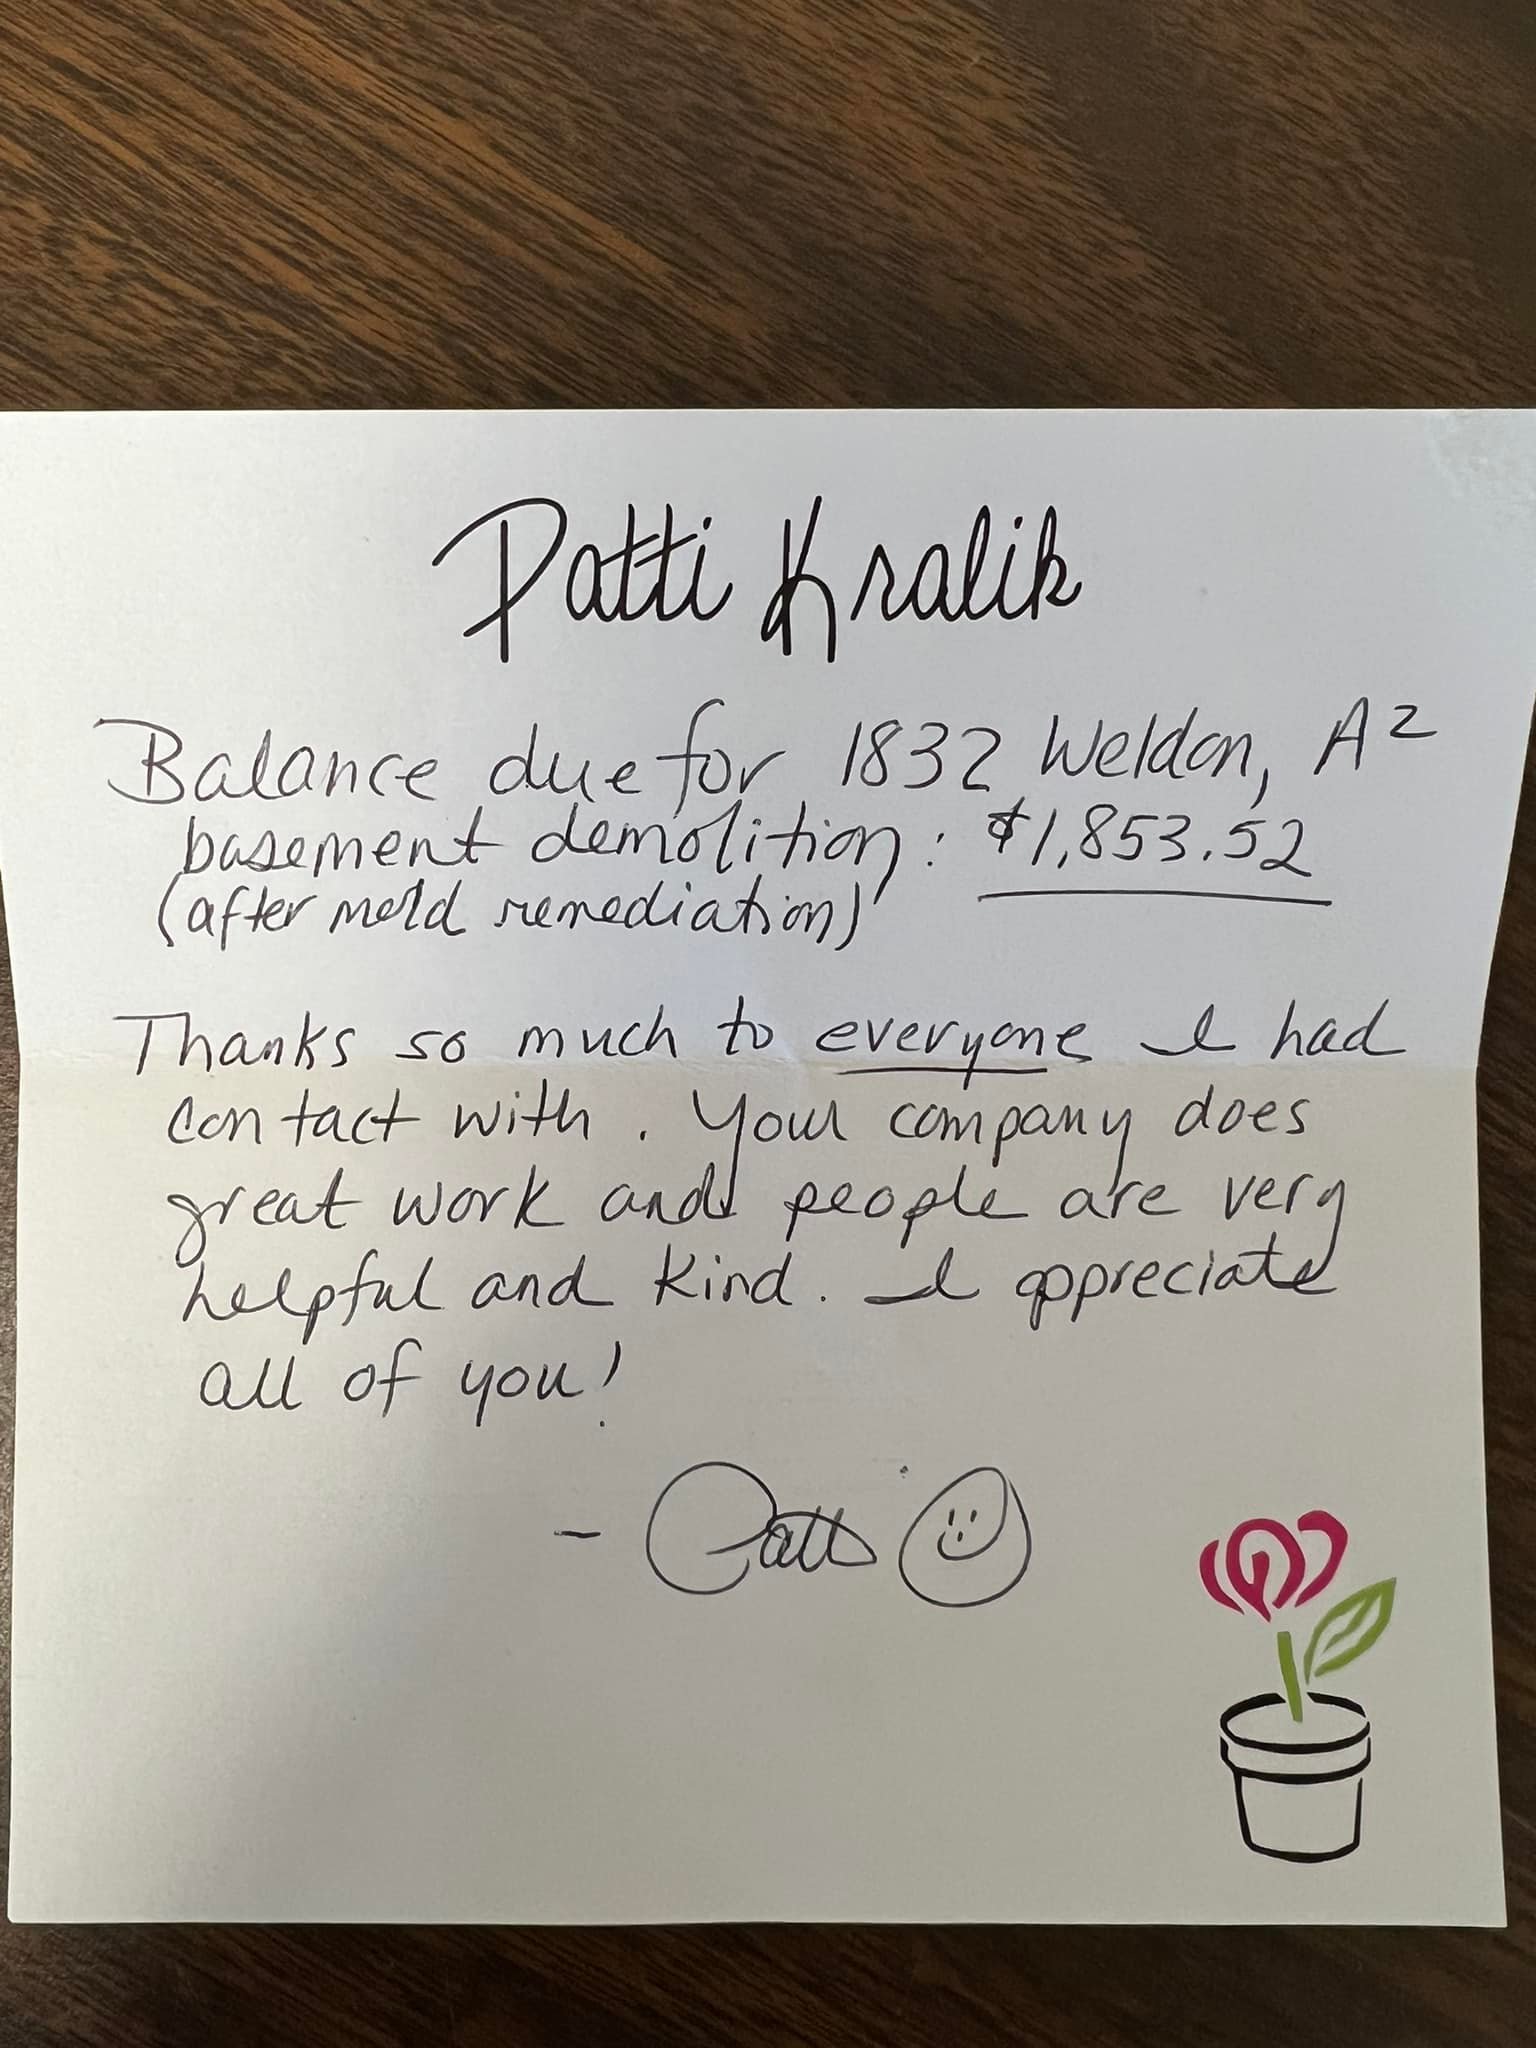 Patti Kralik
Balance due for 1832 Weldon, A²
basement demolition: $1,853.52
(after mold remediation)
Thanks so much to everyone I had
contact with. Your company does
great work and people are very
helpful and kind. I appreciate
all of you!
- Patti